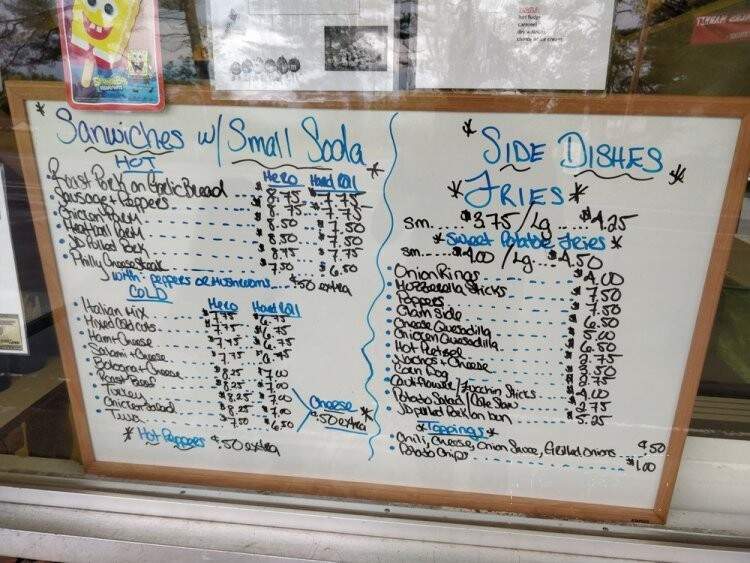 SpongeBob
hot fudge
caramel
Sanwiches w/ Small Soda
HOT
Hero Hard Roll
Roast Pork on Garlic Bread $8.75 $7.75
Sausage & Peppers $8.75 $7.75
Chicken Parm $8.50 $7.50
Meatball Parm $8.50 $7.50
JD Pulled Pork $8.75 $7.75
Philly Cheese Steak $7.50 $6.50
with peppers or mushrooms $.50 extra
COLD
Hero Hard Roll
Italian Mix $7.75 $6.75
Mixed Cold cuts $7.75 $6.75
Ham & Cheese $7.75 $6.75
Salami & Cheese $7.75 $6.75
Bologna & Cheese
Roast Beef $8.25 $7.00
Turkey $8.25 $7.00
Chicken Salad $8.25 $7.00
Tuna $7.50 $6.50
Cheese
$.50 extra
* Hot Peppers $.50 extra
* SIDE DISHES *
* FRIES *
sm. $3.75 / Lg. $4.25
* Sweet Potatoe Fries *
sm. $4.00 / Lg. $4.50
Onion Rings $4.00
Mozzerella Sticks $7.50
Poppers $7.50
Clam Side $6.50
Cheese Quesadilla $5.00
Chicken Quesadilla $6.50
Hot Pretzel $2.75
Nachos & Cheese $3.50
Corn Dog $2.75
Cauliflower / Zucchin Sticks $4.00
Potato Salad / Cole Slaw $2.75
JD pulled Pork on bun $5.25
* Toppings *
Chili, Cheese, Onion Sauce, Grilled Onions $.50
Potato Chips $1.00